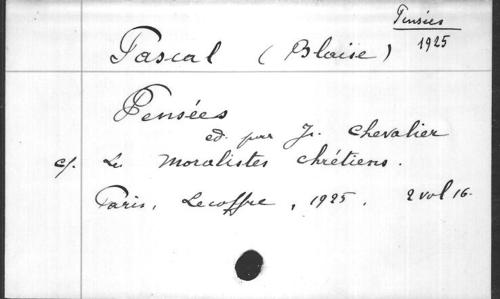 Pensées
1925
Pascal (Blaise)
Pensées
ed. par J. Chevalier
c/. Les Moralistes chrétiens.
Paris, Lecoffre, 1925. 2 vol 16.